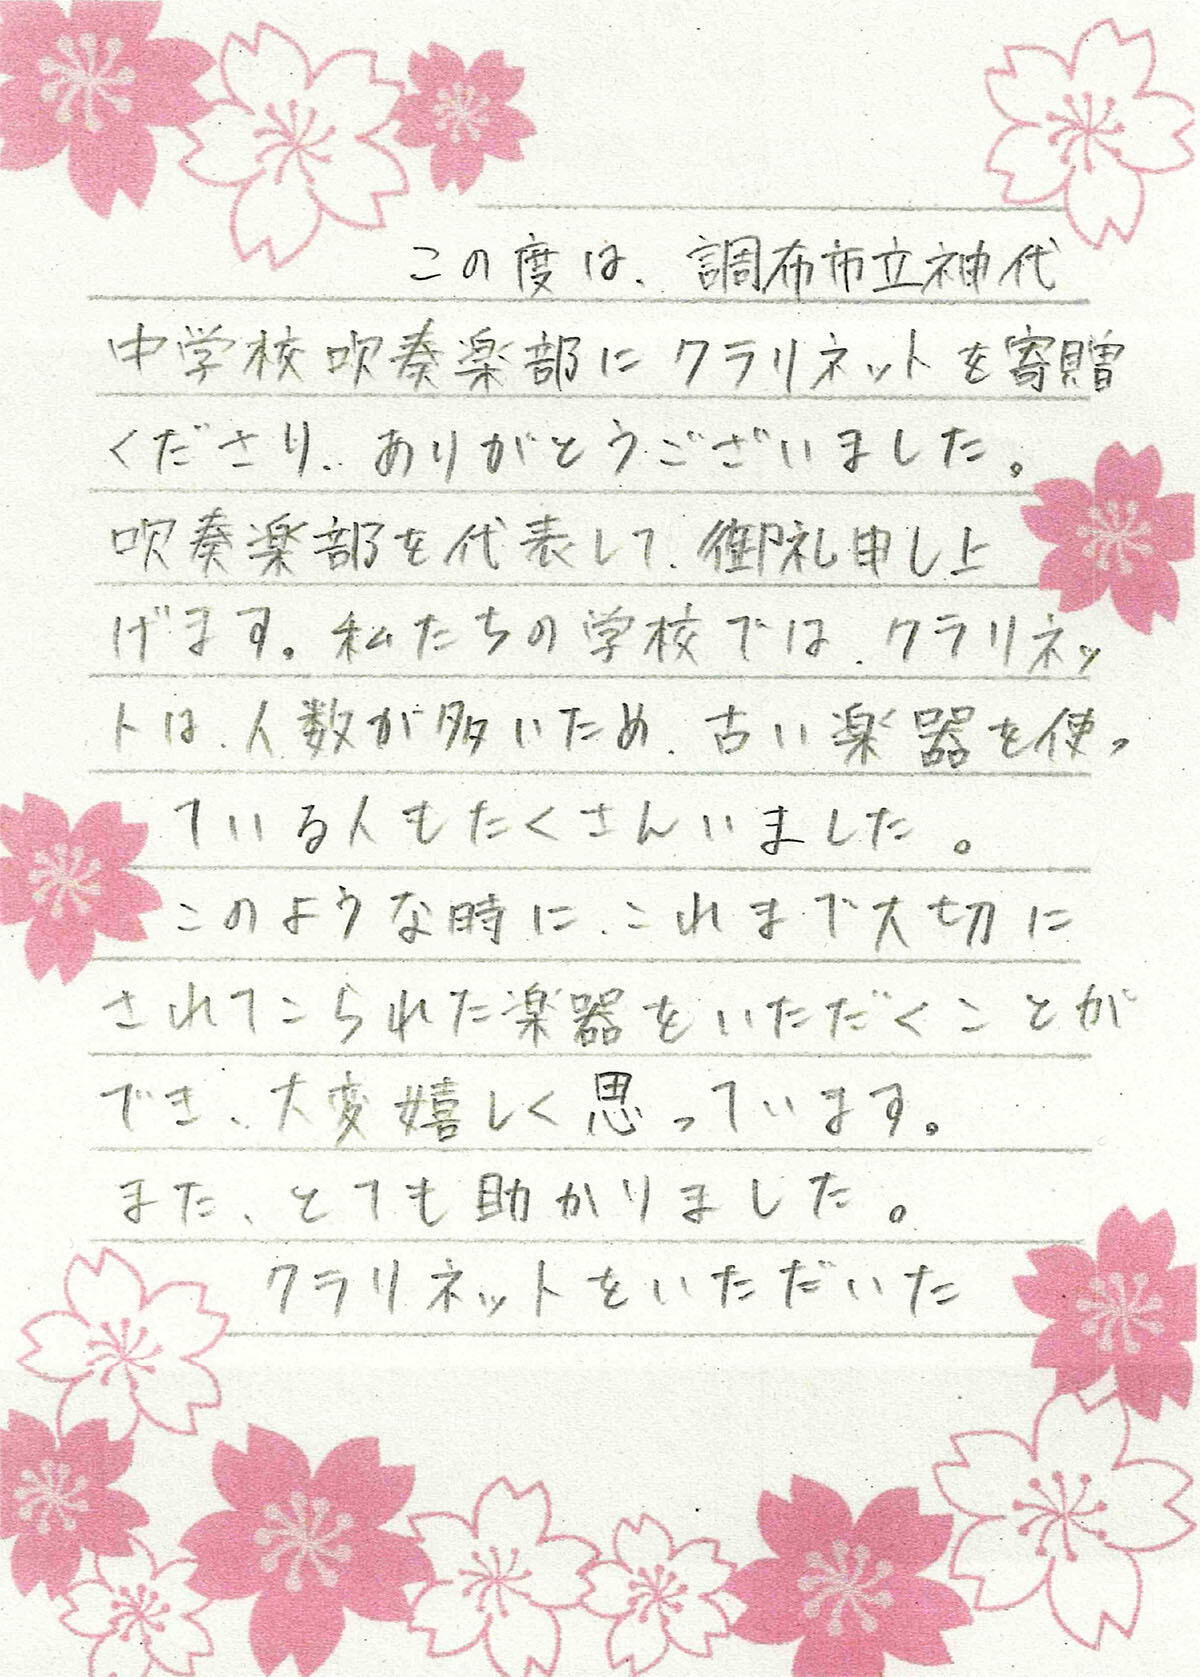 この度は、調布市立神代
中学校吹奏楽部にクラリネットを寄贈
くださり、ありがとうございました。
吹奏楽部を代表して、御礼申し上
げます。私たちの学校では、クラリネッ
トは、人数が多いため、古い楽器を使っ
ている人もたくさんいました。
このような時に、これまで大切に
されてこられた楽器をいただくことが
でき、大変嬉しく思っています。
また、とても助かりました。
クラリネットをいただいた